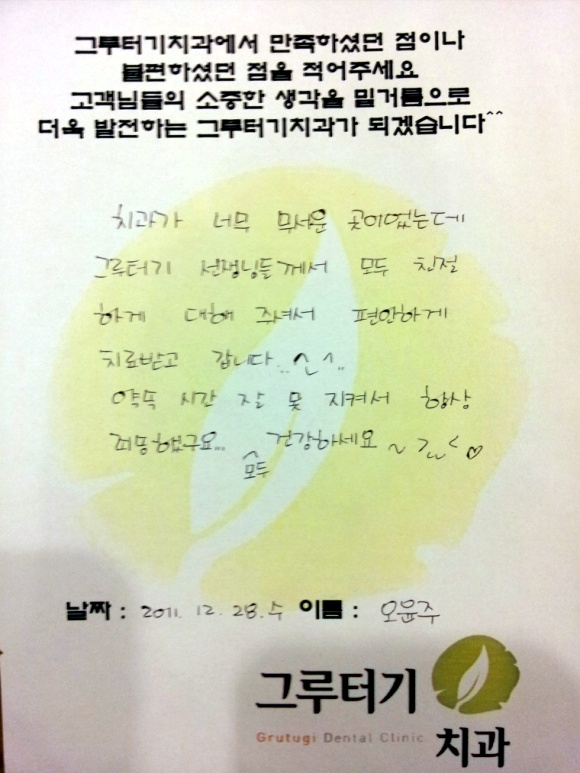 그루터기치과에서 만족하셨던 점이나
불편하셨던 점을 적어주세요
고객님들의 소중한 생각을 밑거름으로
더욱 발전하는 그루터기치과가 되겠습니다^^
치과가 너무 무서운 곳이었는데
그루터기 선생님들께서 모두 친절
하게 대해 주셔서 편안하게
치료받고 갑니다..^_^..
약속 시간 잘 못 지켜서 항상
죄송했구요... 모두 건강하세요~ >_< ♡
날짜 : 2011. 12. 28. 수 이름 : 오윤주
그루터기
Grutugi Dental Clinic
치과